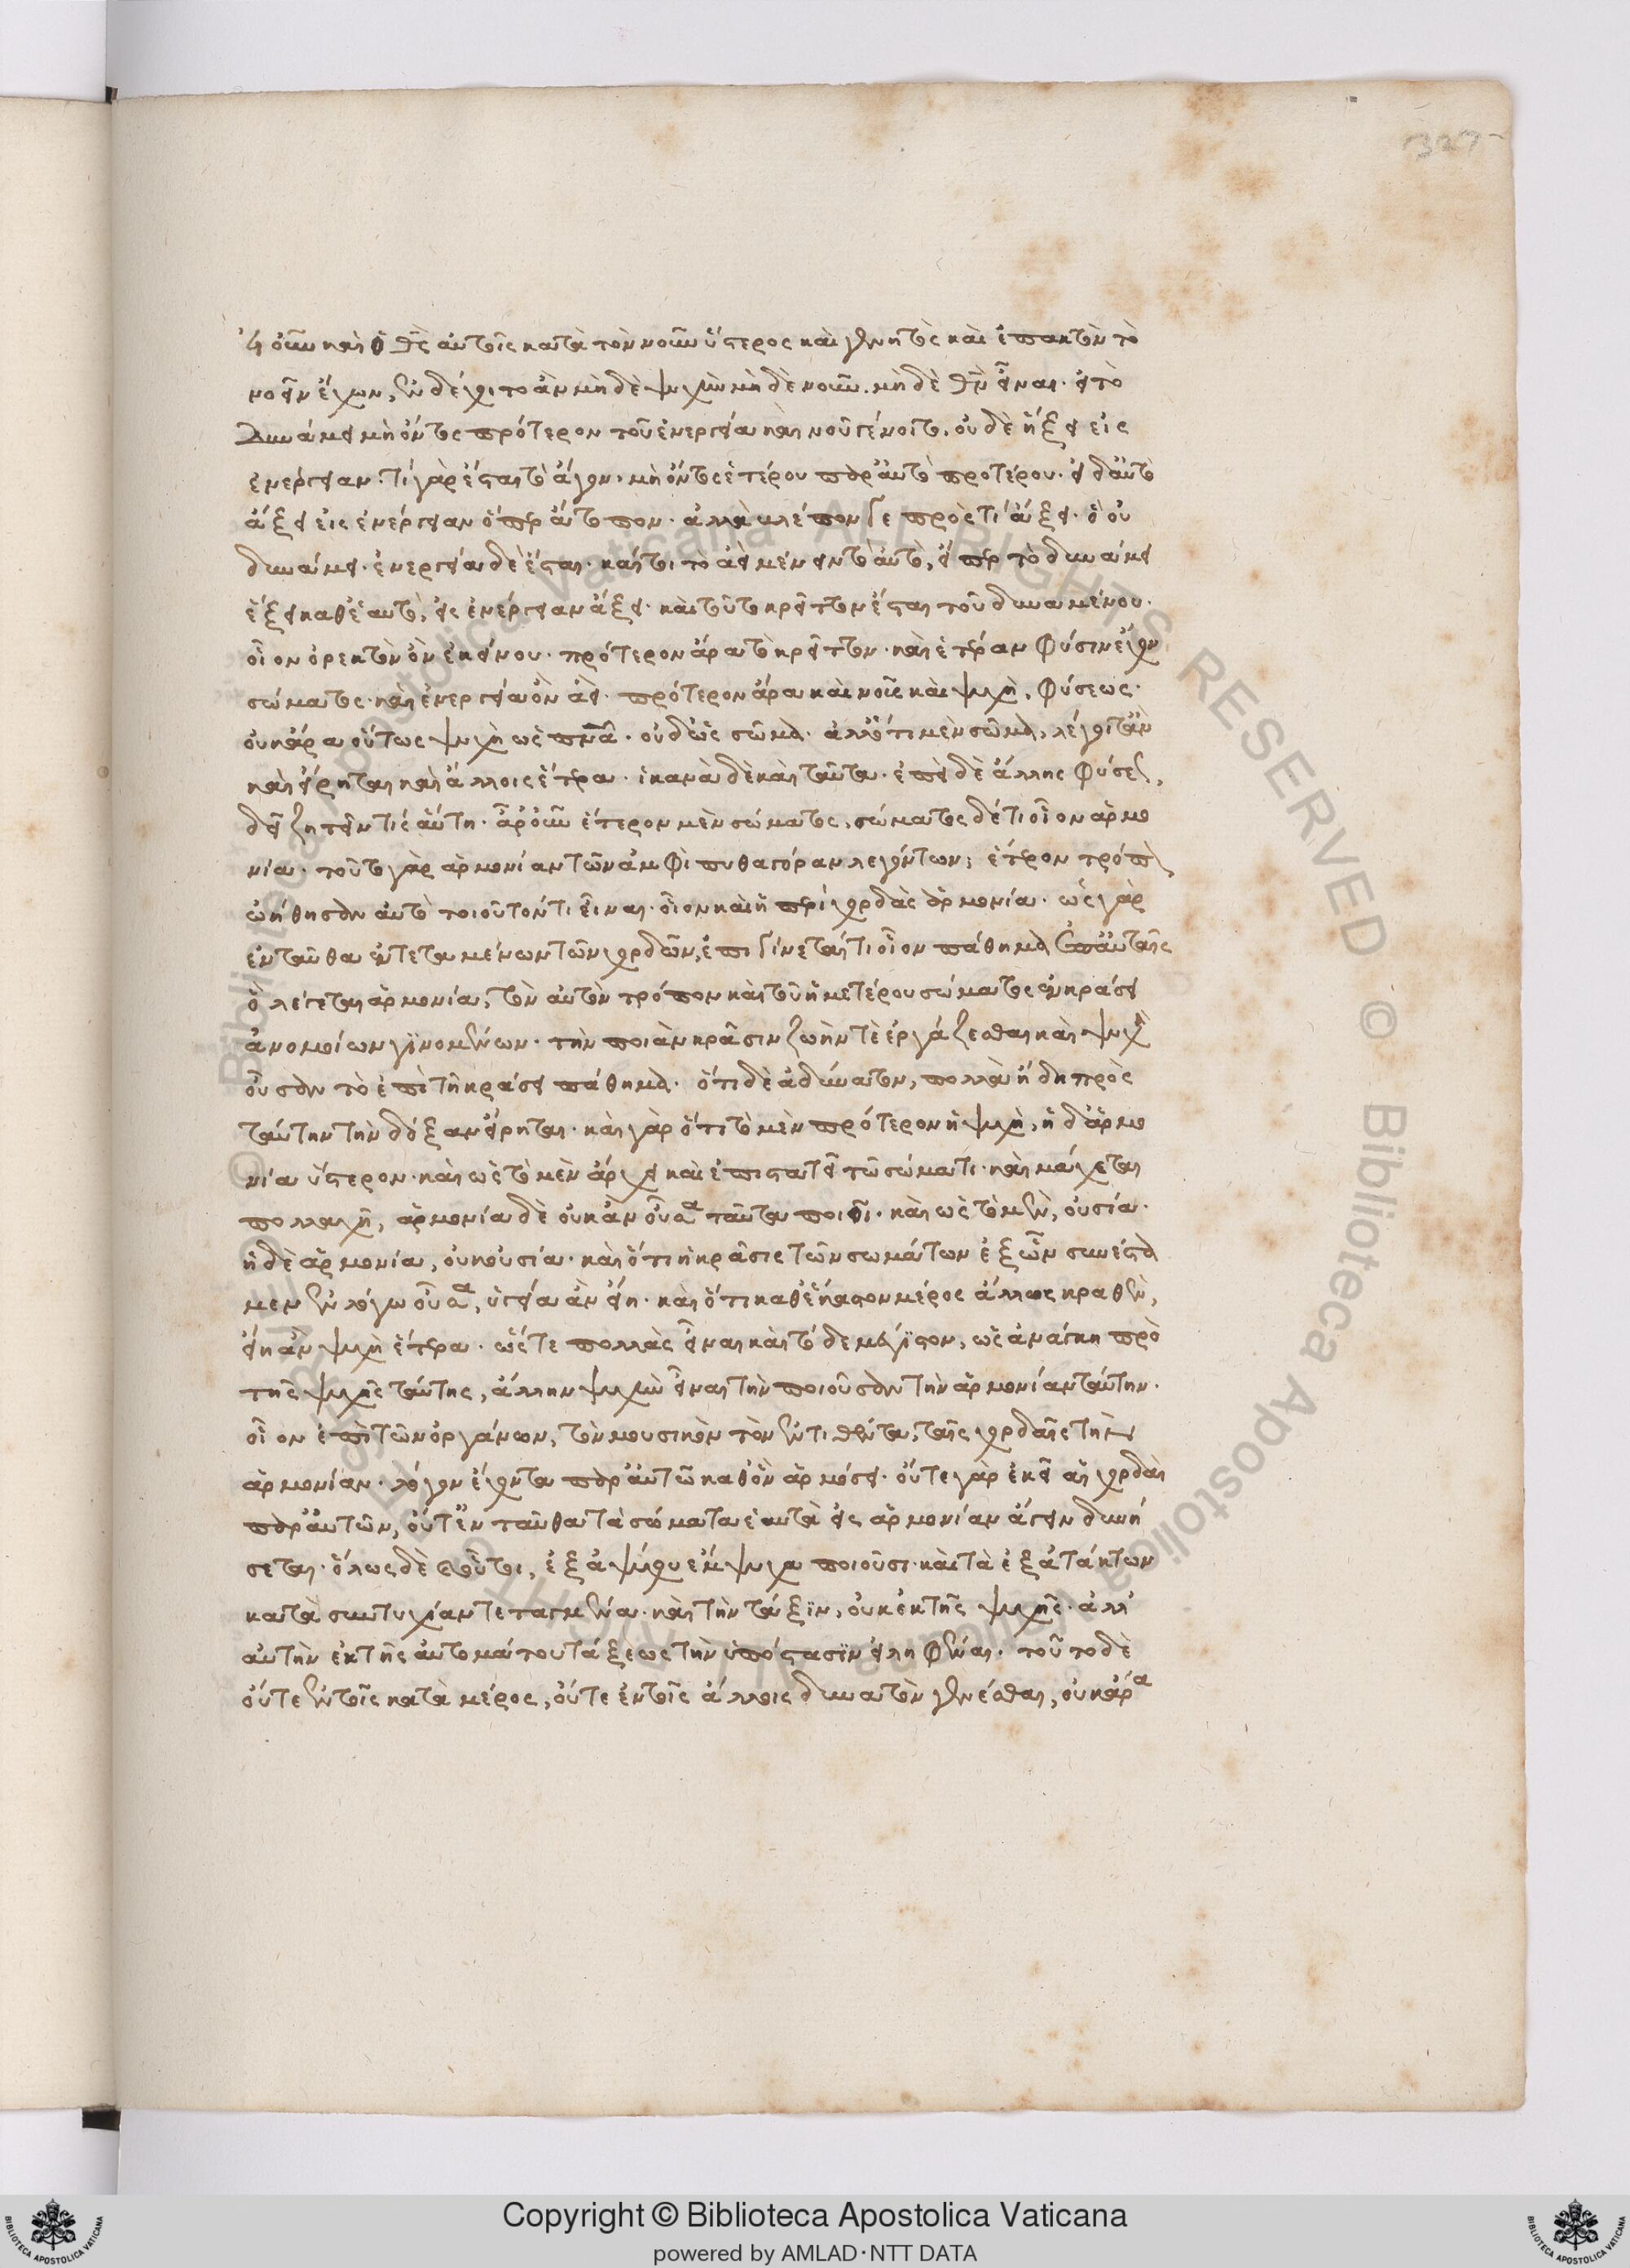 εἰ οὖν καὶ ὁ θς αὐτοῖς κατὰ τὸν νοῦν ὕστερος καὶ γενητὸς καὶ ἐπακτὸν τὸ
νοεῖν ἔχων, ἐνδέχοιτο ἂν μηδὲ ψυχὴν μηδὲ νοῦν. μηδὲ θν εἶναι. εἰ τὸ
δυνάμει μὴ ὄντος πρότερον τοῦ ἐνεργείαι καὶ νοῦ γένοιτο. οὐδὲ ἥξει εἰς
ἐνέργειαν. τί γὰρ ἔσται τὸ ἄγον. μὴ ὄντος ἑτέρου παρ' αὐτὸ προτέρου. εἰ δ' αὐτὸ
ἄξει εἰς ἐνέργειαν ὅπερ ἄτοπον. ἀλλὰ βλέπον γε πρός τι ἄξει. ὃ οὐ
δυνάμει. ἐνεργείαι δὲ ἔσται. καίτοι τὸ ἀεὶ μένειν τὸ αὐτὸ, εἴπερ τὸ δυνάμει
ἕξει καθ' ἑαυτὸ, εἰς ἐνέργειαν ἄξει. καὶ τοῦτο κρεῖττον ἔσται τοῦ δυναμένου.
οἷον ὀρεκτὸν ὂν ἐκείνου. πρότερον ἄρα τὸ κρεῖττον. καὶ ἑτέραν φύσιν ἔχον
σώματος. καὶ ἐνεργείαι ὂν ἀεί. πρότερον ἄρα καὶ νοῦς καὶ ψυχὴ, φύσεως.
οὐκ ἄρα οὕτως ψυχὴ ὡς πνᾶ. οὐδ' ὡς σῶμα. ἀλλ' ὅτι μὲν σῶμα, λέγοιτ' ἂν
καὶ εἴρηται καὶ ἄλλοις ἕτερα. ἱκανὰ δὲ καὶ ταῦτα. ἐπεὶ δὲ ἄλλης φύσεως,
δεῖ ζητεῖν τίς αὕτη. ἆρ' οὖν ἕτερον μὲν σώματος, σώματος δέ τι οἷον ἁρμο
νία. τοῦτο γὰρ ἁρμονίαν τῶν ἀμφὶ πυθαγόραν λεγόντων; ἕτερον τρόπον
ᾠήθησαν αὐτὸ τοιοῦτόν τι εἶναι. οἷον καὶ ἡ περὶ χορδὰς ἁρμονία. ὡς γὰρ
ἐνταῦθα ἐντεταμένων τῶν χορδῶν, ἐπιγίνεταί τι οἷον πάθημα ἐπ' αὐταῖς
ὃ λέγεται ἁρμονία, τὸν αὐτὸν τρόπον καὶ τοῦ ἡμετέρου σώματος ἐν κράσει
ἀνομοίων γινομένων. τὴν ποιὰν κρᾶσιν ζωήν τε ἐργάζεσθαι καὶ ψυχὴ
οὖσαν τὸ ἐπὶ τῆ κράσει πάθημα. ὅτι δὲ ἀδύνατον, πολλὰ ἤδη πρὸς
ταύτην τὴν δόξαν εἴρηται. καὶ γὰρ ὅτι τὸ μὲν πρότερον ἡ ψυχὴ, ἡ δ' ἁρμο
νία ὕστερον. καὶ ὡς τὸ μὲν ἄρχει καὶ ἐπιστατεῖ τῶ σώματι. καὶ μάχεται
πολλαχῆ, ἁρμονία δὲ οὐκ ἂν οὖσα ταῦτα ποιοῖ. καὶ ὡς τὸ μὲν, οὐσία.
ἡ δὲ ἁρμονία, οὐκ οὐσία. καὶ ὅτι ἡ κρᾶσις τῶν σωμάτων ἐξ ὧν συνέστα
μεν ἐν λόγω οὖσα, ὑγεία ἂν εἴη. καὶ ὅτι καθ' ἕκαστον μέρος ἄλλως κραθὲν,
εἴη ἂν ψυχὴ ἑτέρα. ὥστε πολλὰς εἶναι καὶ τὸ δὲ μέγιστον, ὡς ἀνάγκη πρὸ
τῆς ψυχῆς ταύτης, ἄλλην ψυχὴν εἶναι τὴν ποιοῦσαν τὴν ἁρμονίαν ταύτην.
οἷον ἐπὶ τῶν ὀργάνων, τὸν μουσικὸν τὸν ἐντιθέντα, ταῖς χορδαῖς τὴν
ἁρμονίαν. λόγον ἔχοντα παρ' αὐτῶ καθ' ὃν ἁρμόσει. οὔτε γὰρ ἐκεῖ αἱ χορδαὶ
παρ' αὑτῶν, οὔτ' ἐνταῦθα τὰ σώματα ἑαυτὰ εἰς ἁρμονίαν ἄγειν δυνή
σεται. ὅλως δὲ καὶ οὗτοι, ἐξ ἀψύχου ἔμψυχα ποιοῦσι. καὶ τὰ ἐξ ἀτάκτων
κατὰ συντυχίαν τεταγμένα. καὶ τὴν τάξιν, οὐκ ἐκ τῆς ψυχῆς. ἀλλ'
αὐτὴν ἐκ τῆς αὐτομάτου τάξεως τὴν ὑπόστασιν εἰληφέναι. τοῦτο δὲ
οὔτε ἐν τοῖς κατὰ μέρος, οὔτε ἐν τοῖς ἄλλοις δυνατὸν γενέσθαι, οὐκ ἄρα